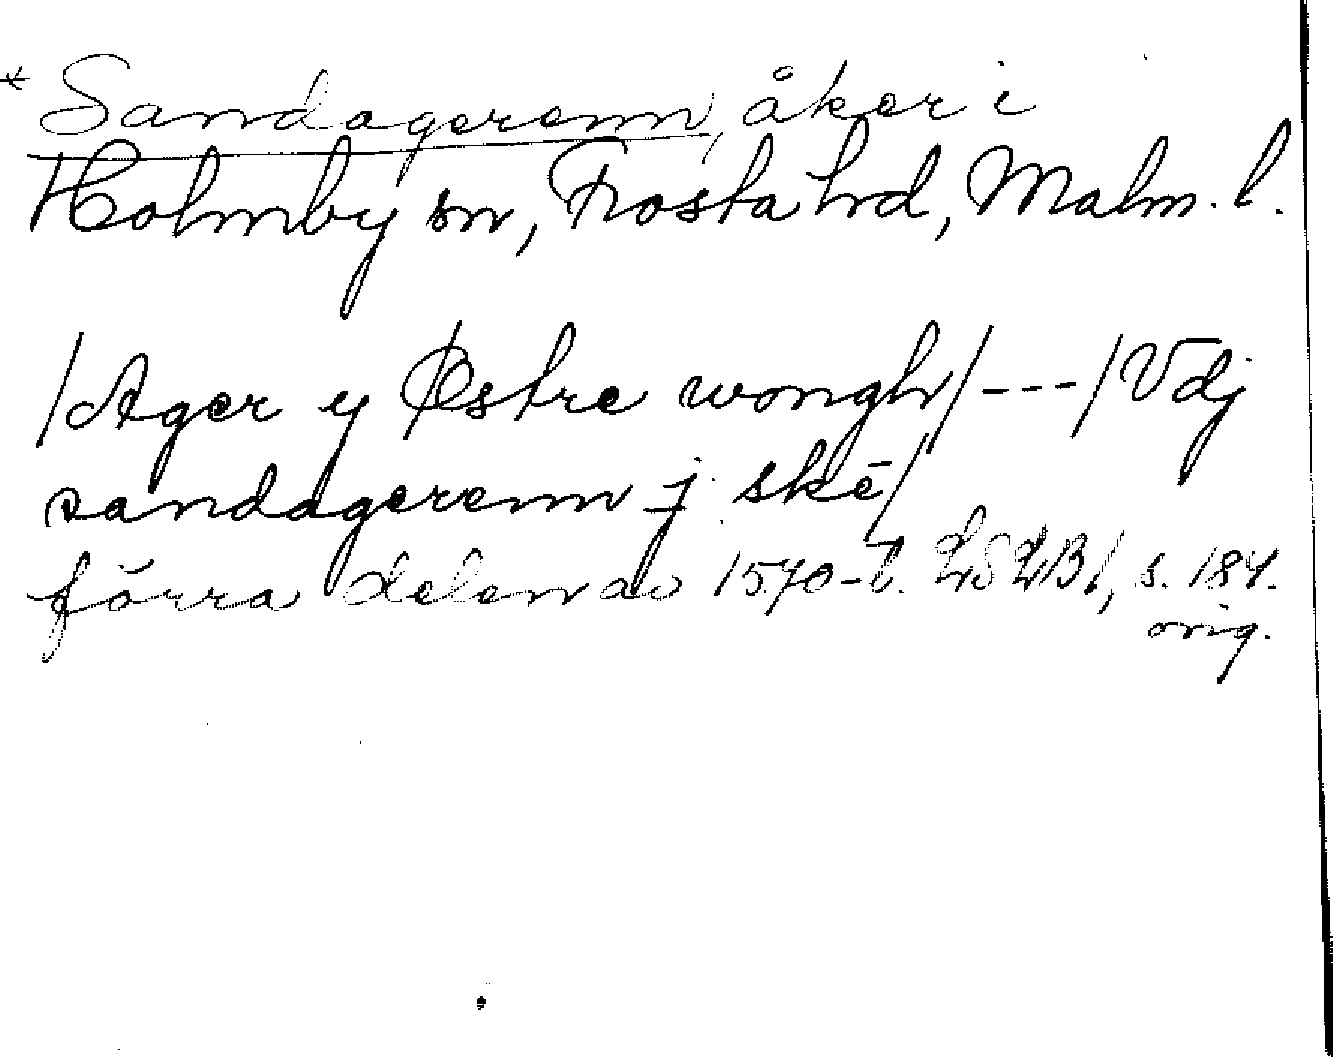 * Sandagerenn, åker i
Holmby sn, Frosta hd, Malm. l.
/Ager y Østre wongh/---/Vdj
sandagerenn j skē/
förra delen av 1570-t. LSLB 1, s. 184.
orig.